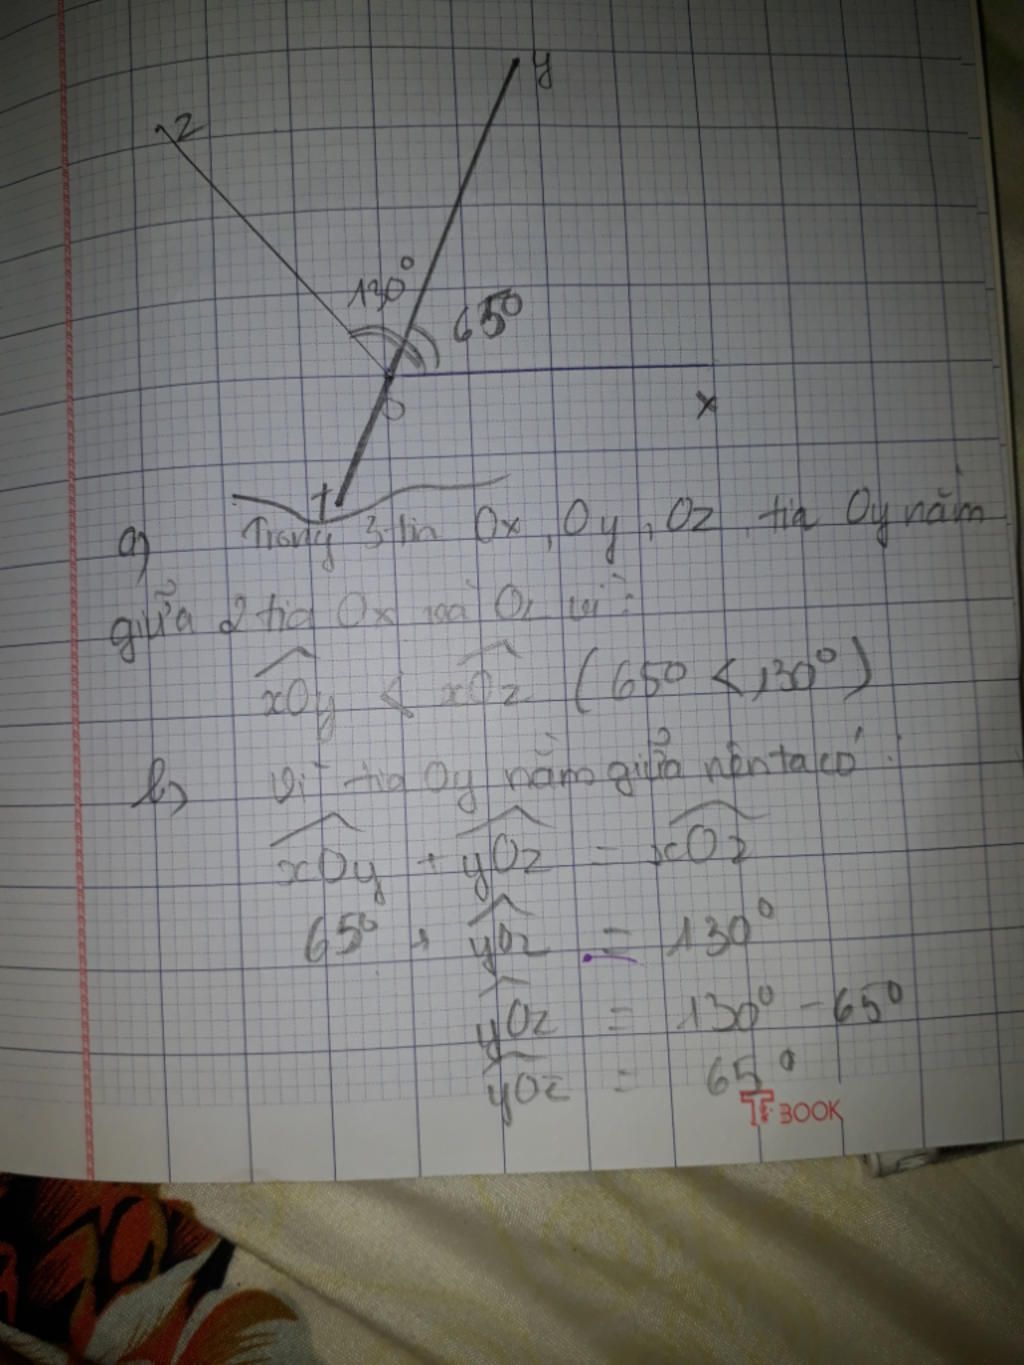 y
z
130°
65°
O
x
t
a) Trong 3 tia Ox, Oy, Oz, tia Oy nằm
giữa 2 tia Ox và Oz vì:
xOy < xOz (65° < 130°)
b) Vì tia Oy nằm giữa nên ta có:
xOy + yOz = xOz
65° + yOz = 130°
yOz = 130° - 65°
yOz = 65°
BOOK